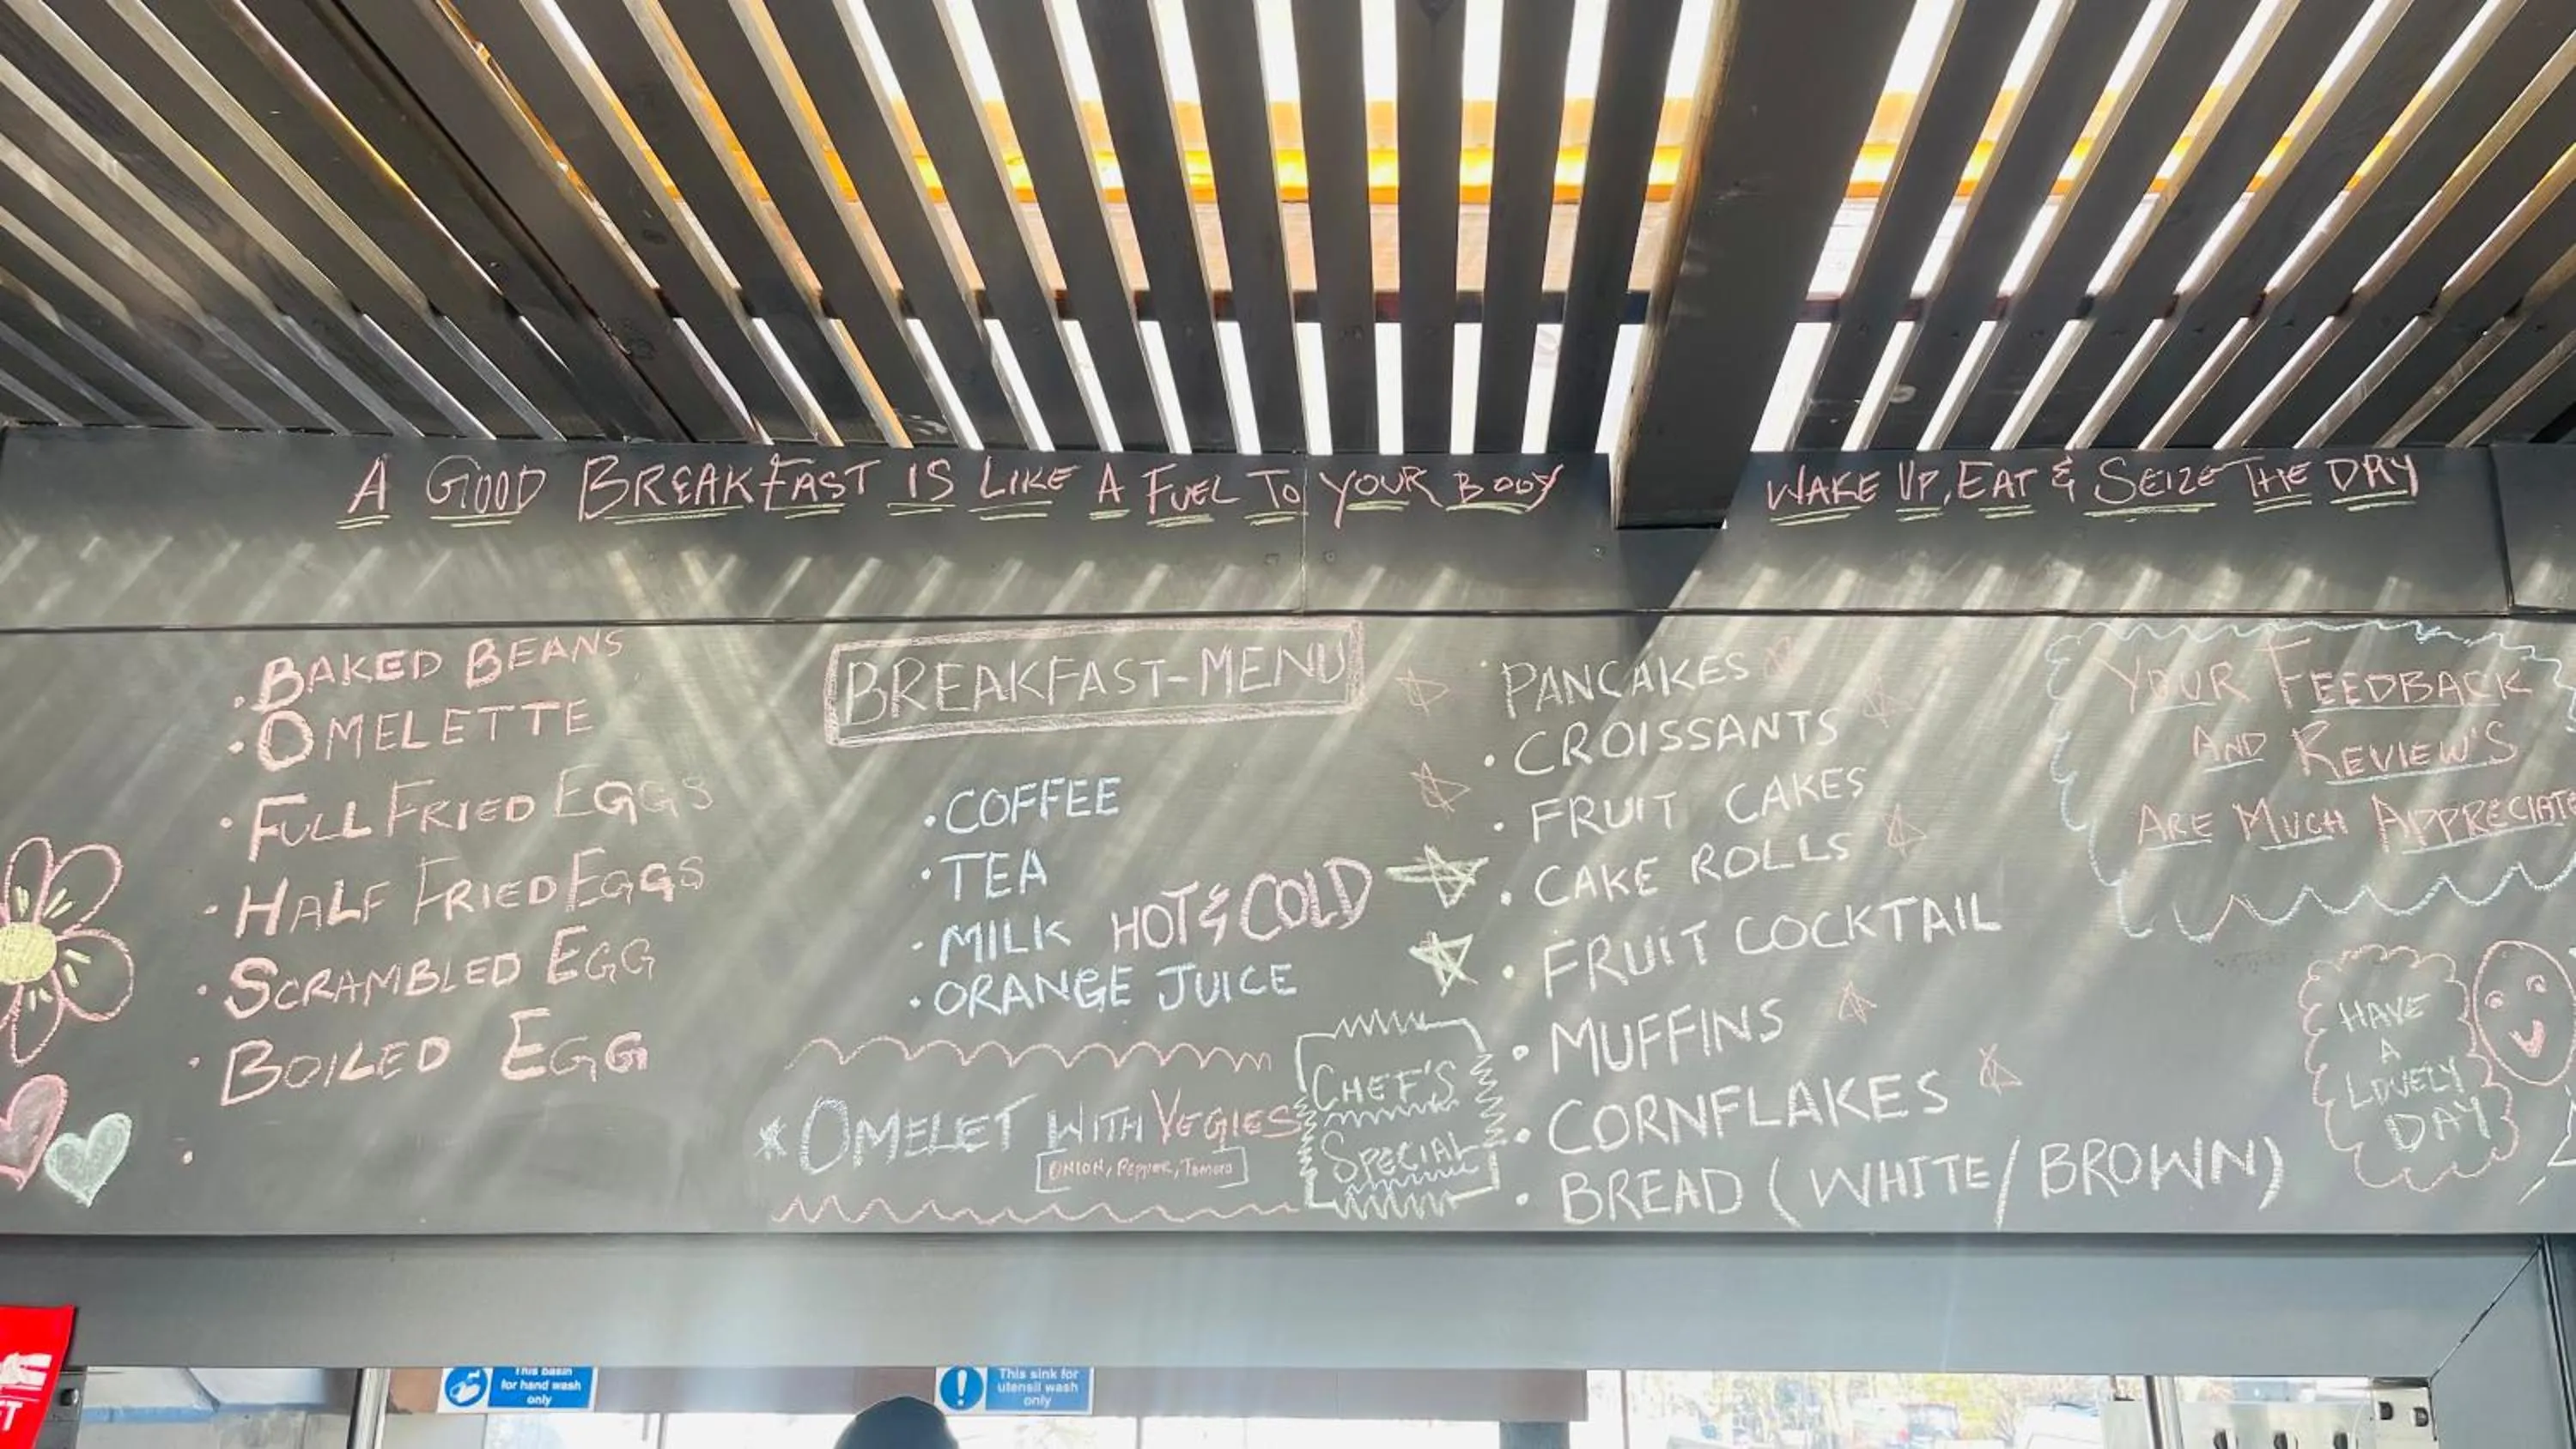 A GOOD BREAKFAST IS LIKE A FUEL TO YOUR BODY
WAKE UP, EAT & SEIZE THE DAY
• BAKED BEANS
• OMELETTE
• FULL FRIED EGGS
• HALF FRIED EGGS
• SCRAMBLED EGG
• BOILED EGG
•
BREAKFAST-MENU
• COFFEE
• TEA
• MILK HOT & COLD
• ORANGE JUICE
* OMELET WITH VEGIES
ONION, Pepper, Tomato
CHEF'S
SPECIAL
• PANCAKES
• CROISSANTS
• FRUIT CAKES
• CAKE ROLLS
• FRUIT COCKTAIL
• MUFFINS
• CORNFLAKES
• BREAD (WHITE/BROWN)
YOUR FEEDBACK
AND REVIEW'S
ARE MUCH APPRECIAT
HAVE
A
LOVELY
DAY
This basin
for hand wash
only
This sink for
utensil wash
only